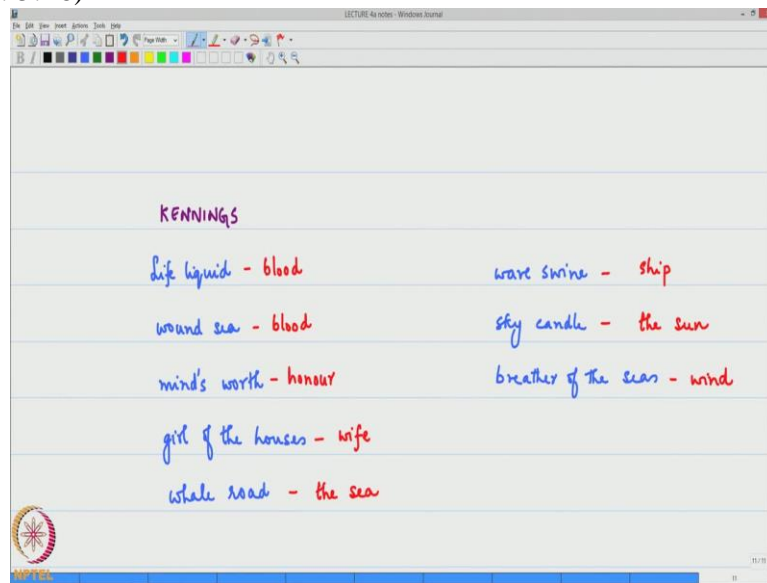 LECTURE 4a notes - Windows Journal
File Edit View Insert Actions Tools Help
Page Width
B I
KENNINGS
Life liquid - blood
wound sea - blood
mind's worth - honour
girl of the houses - wife
whale road - the sea
wave swine - ship
sky candle - the sun
breather of the seas - wind
NPTEL
11/11